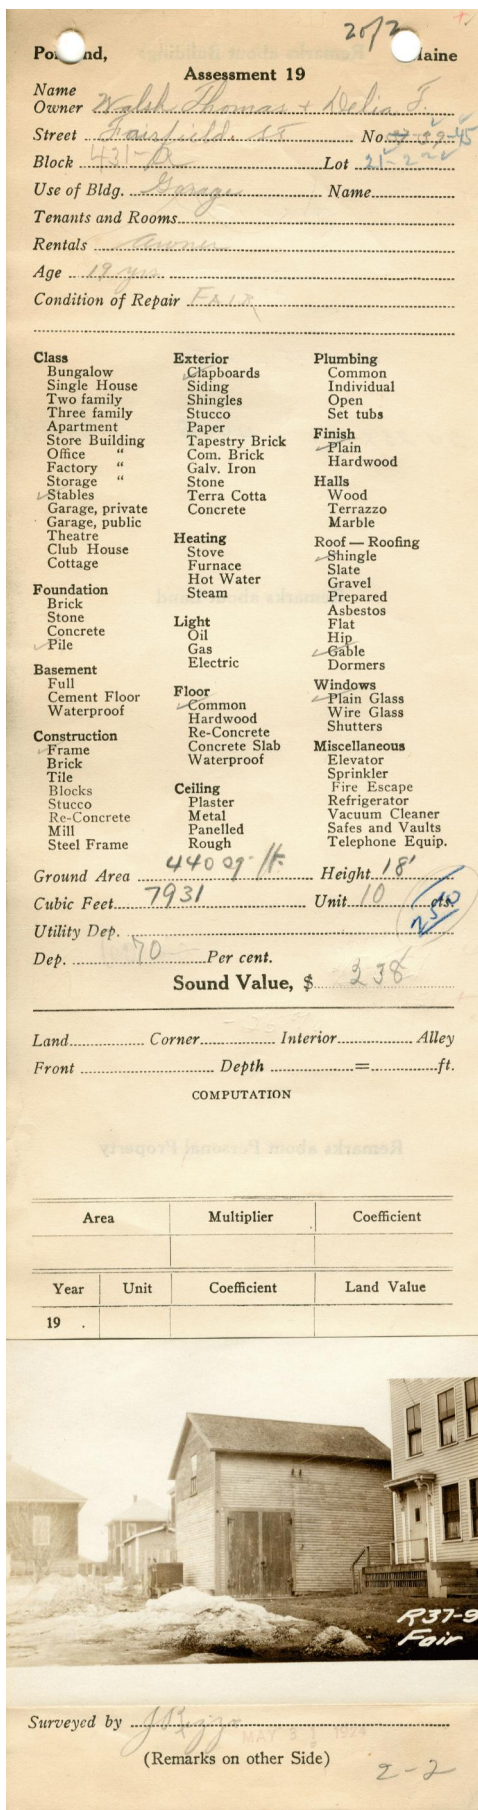 20/2
Portland, Maine
Assessment 19
Name
Owner Walsh Thomas + Delia F.
Street Fairfield St No. 37-39-45
Block 431-A Lot 21-2
Use of Bldg. Garage Name
Tenants and Rooms
Rentals Owner
Age 19 yrs.
Condition of Repair FAIR
Class
Bungalow
Single House
Two family
Three family
Apartment
Store Building
Office "
Factory "
Storage "
✓Stables
Garage, private
Garage, public
Theatre
Club House
Cottage
Foundation
Brick
Stone
Concrete
✓Pile
Basement
Full
Cement Floor
Waterproof
Construction
✓Frame
Brick
Tile
Blocks
Stucco
Re-Concrete
Mill
Steel Frame
Exterior
✓Clapboards
Siding
Shingles
Stucco
Paper
Tapestry Brick
Com. Brick
Galv. Iron
Stone
Terra Cotta
Concrete
Heating
Stove
Furnace
Hot Water
Steam
Light
Oil
Gas
Electric
Floor
✓Common
Hardwood
Re-Concrete
Concrete Slab
Waterproof
Ceiling
Plaster
Metal
Panelled
Rough
Plumbing
Common
Individual
Open
Set tubs
Finish
✓Plain
Hardwood
Halls
Wood
Terrazzo
Marble
Roof — Roofing
✓Shingle
Slate
Gravel
Prepared
Asbestos
Flat
Hip
✓Gable
Dormers
Windows
✓Plain Glass
Wire Glass
Shutters
Miscellaneous
Elevator
Sprinkler
Fire Escape
Refrigerator
Vacuum Cleaner
Safes and Vaults
Telephone Equip.
Ground Area 440 sq. ft. Height 18'
Cubic Feet 7931 Unit 10 cts.
250
Utility Dep.
Dep. 70 Per cent.
Sound Value, $ 238
Land Corner Interior Alley
Front Depth = ft.
COMPUTATION
Area Multiplier Coefficient
Year Unit Coefficient Land Value
19
R37-9
Fair
Surveyed by
MAY 31 1924
(Remarks on other Side)
2-2